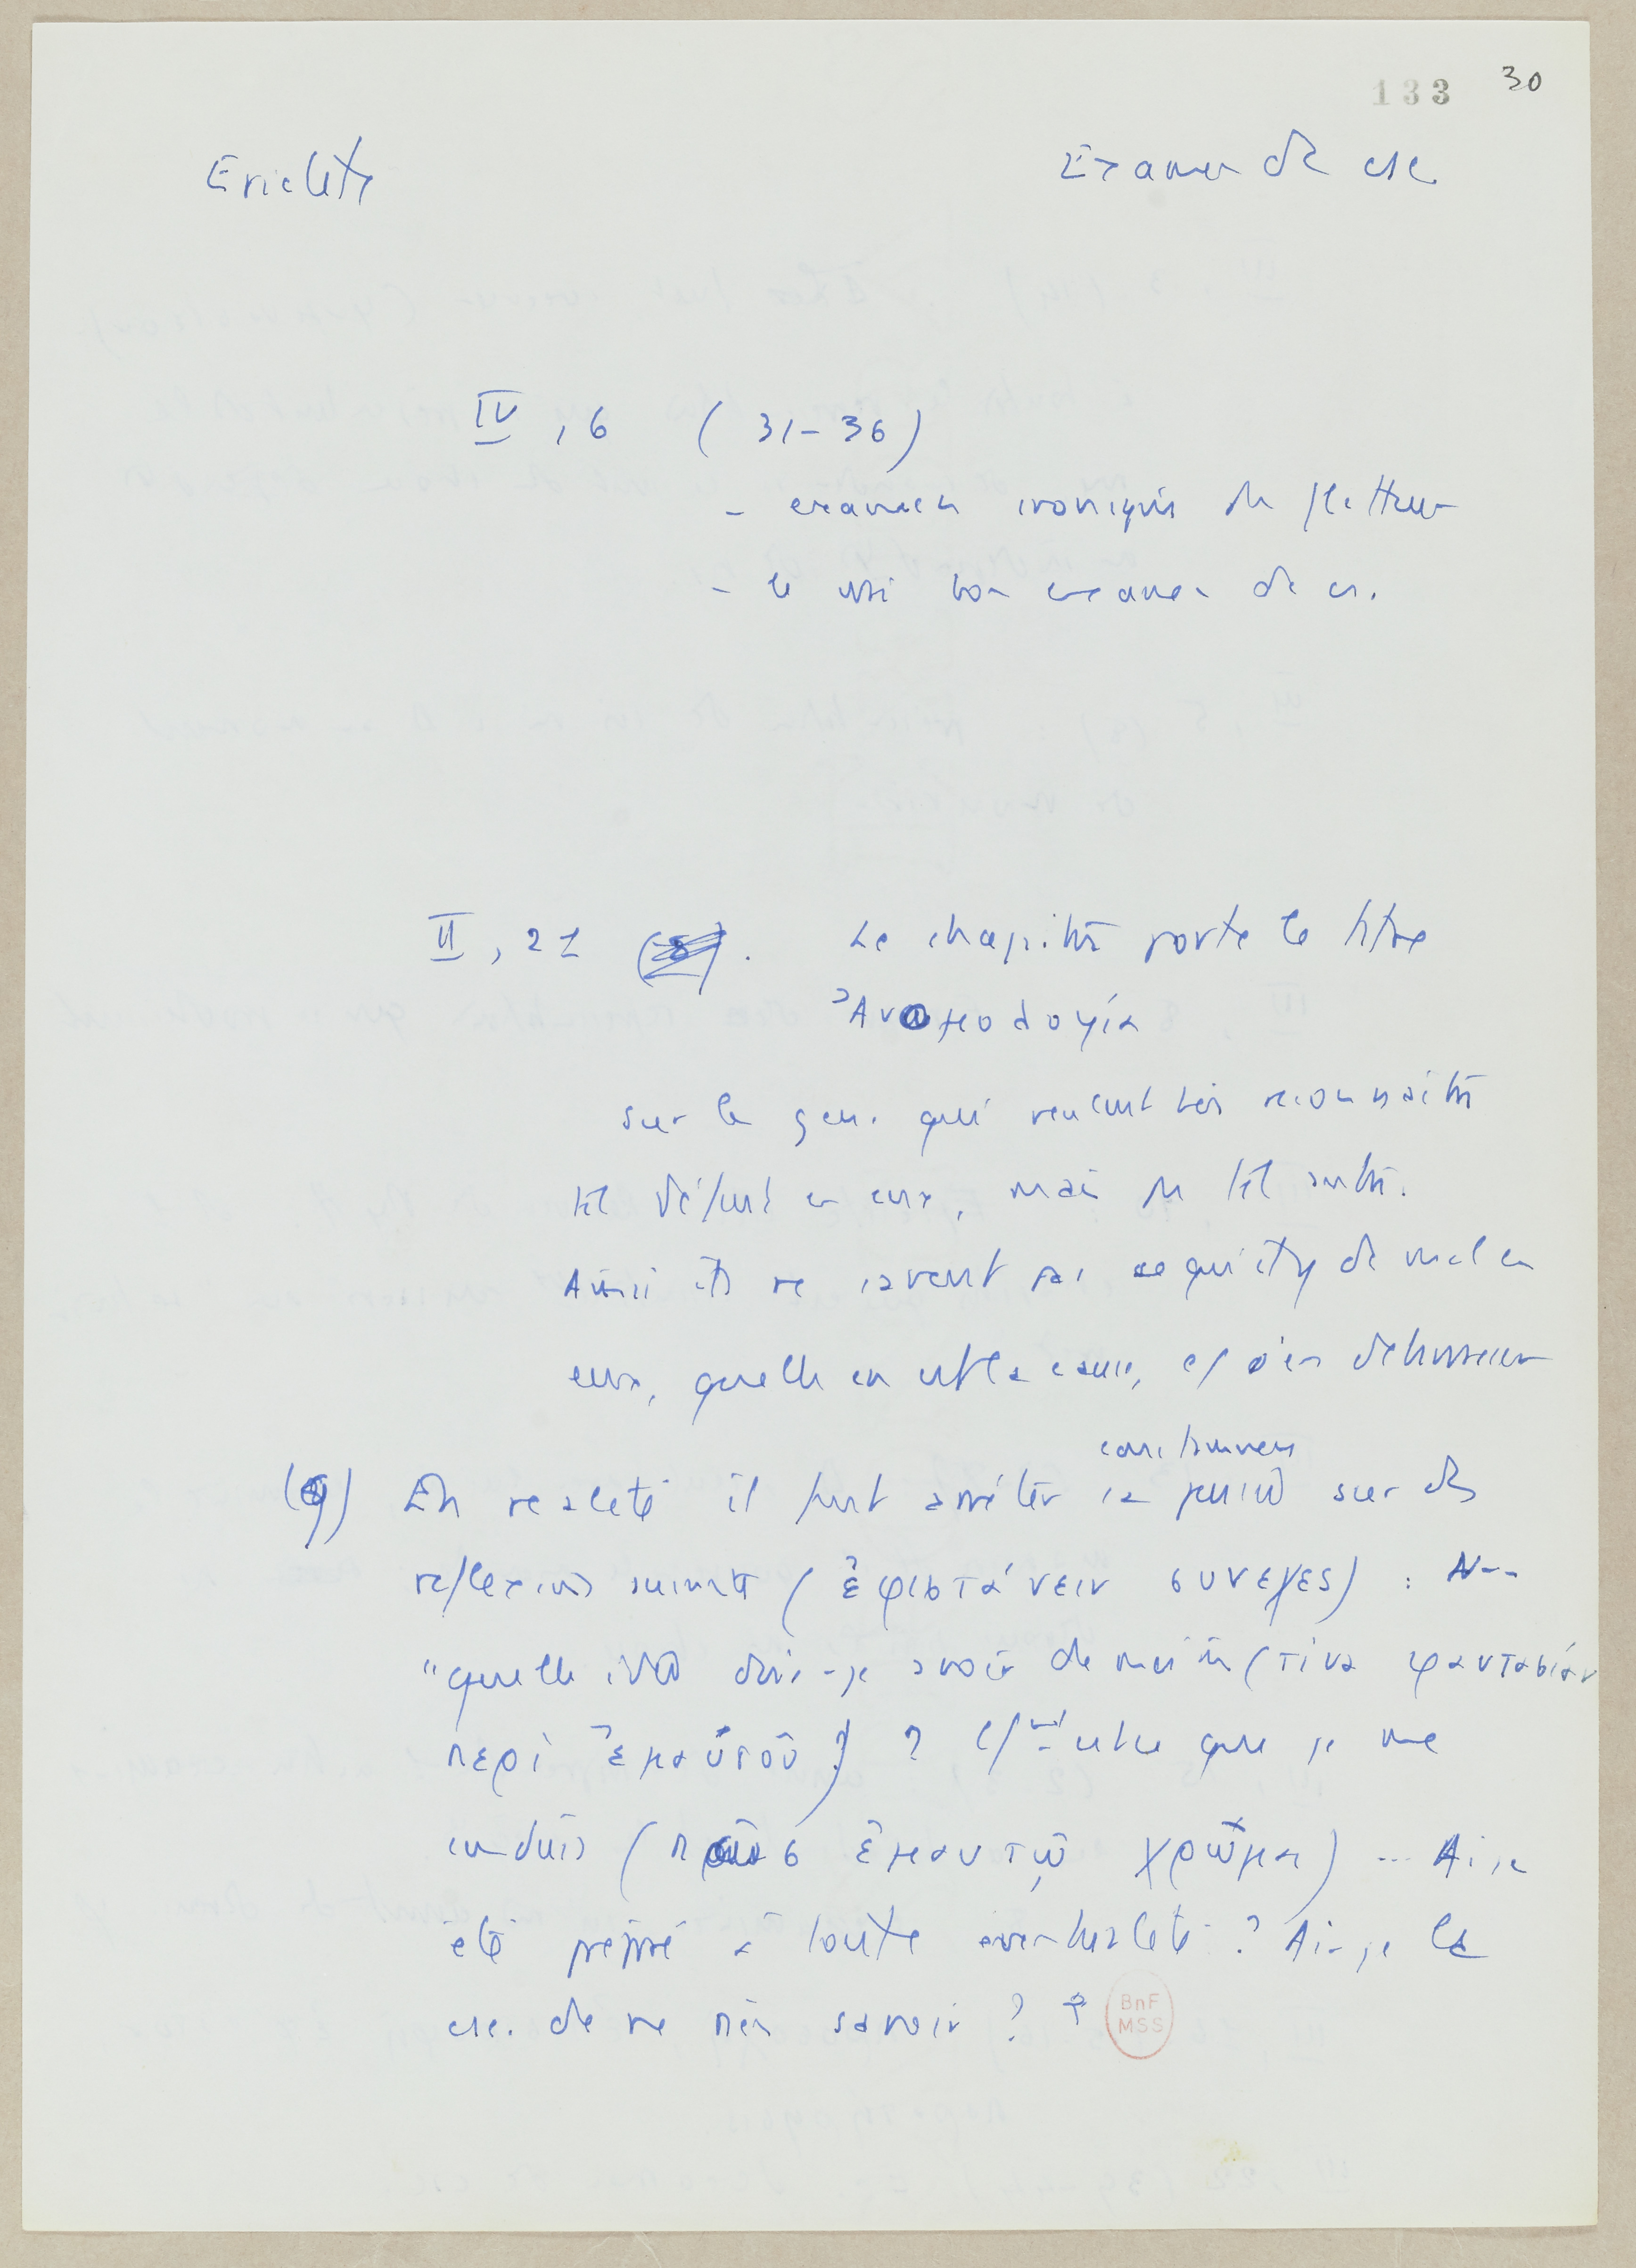 133 30
Epictète Examen de csc
IV, 6 (31-36)
- examen ironique du flatteur
- le vrai bon examen de cs.
II, 21 (8). Le chapitre porte le titre
Ἀνομολογία
sur les gens qui veulent bien reconnaître
tel défaut en eux, mais pas tel autre.
Ainsi ils ne savent pas ce qu'il y a de mal en
eux, quelle en est la cause, et s'en débarrasser
continument
(9) En réalité il faut arrêter sa pensée sur des
réflexions suivantes (ἐφιστάνειν συνεχες) :
"quelle idée dois-je avoir de moi-même (τίνα φαντασίαν
περὶ ἐμαυτοῦ) ? est-ce que je me
conduis (πῶς ἐμαυτῷ χρῶμαι) ... Ai-je
été préparé à toute éventualité ? Ai-je la
csc. de ne rien savoir ?
BnF
MSS